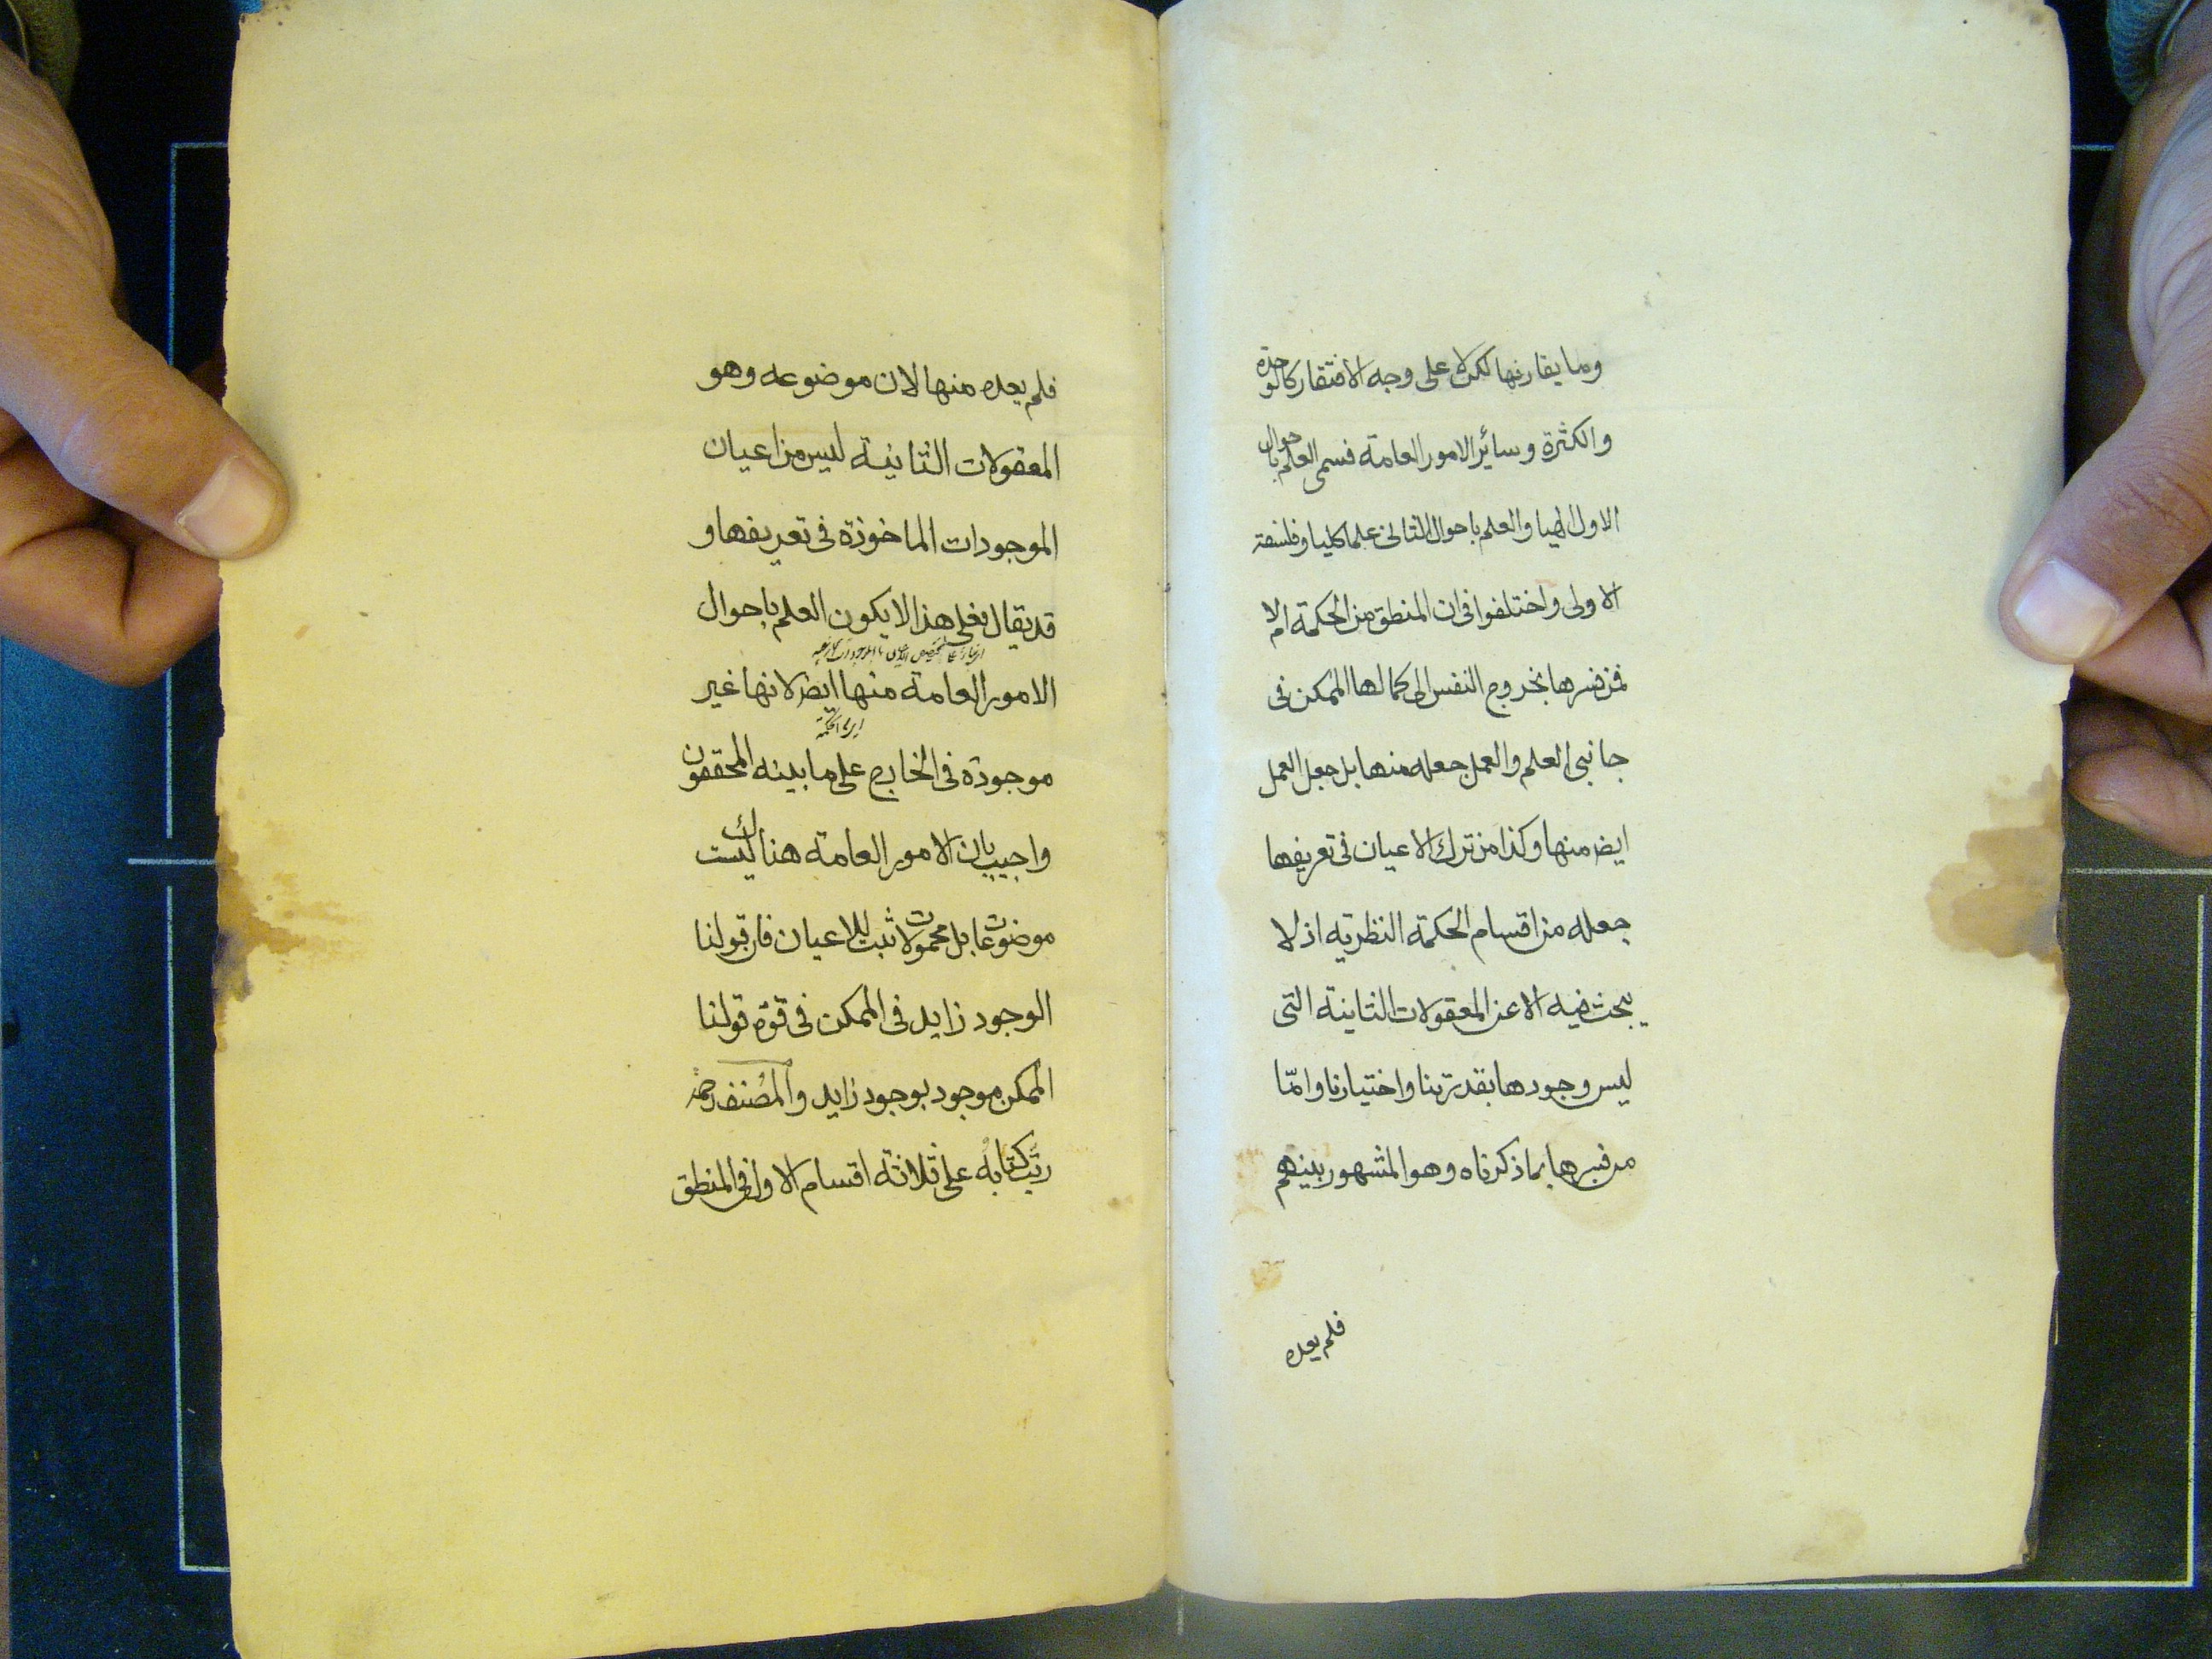 وما يقارنها لكن لا على وجه الافتقار كالوحدة
والكثرة وسائر الامور العامة فسمى العلم باحوال
الاول الهيا والعلم باحوال الثانى علما كليا وفلسفة
الاولى واختلفوا فى ان المنطق من الحكمة ام لا
فمن فسرها بخروج النفس الى كمالها الممكن فى
جانبى العلم والعمل جعله منها بل جعل العمل
ايضا منها وكذا من ترك الاعيان فى تعريفها
جعله من اقسام الحكمة النظرية اذ لا
يبحث فيه الا عن المعقولات الثانية التى
ليس وجودها بقدرتنا واختيارنا وامّا
من فسرها بما ذكرناه وهو المشهور بينهم
فلم يعده
فلم يعده منها لان موضوعه وهو
المعقولات الثانية ليس من اعيان
الموجودات الماخوذة فى تعريفها و
قد يقال فعلى هذا لا يكون العلم باحوال
الامور العامة منها ايضا لانها غير
اى من الحكمة
موجودة فى الخارج على ما بينه المحققون
واجيب بان الامور العامة هناك ليست
موضوعات بل محمولات تثبت للاعيان فان قولنا
الوجود زايد فى الممكن فى قوة قولنا
الممكن موجود بوجود زايد والمصنف رحمه
رتّب كتابه على ثلاثة اقسام الاول فى المنطق